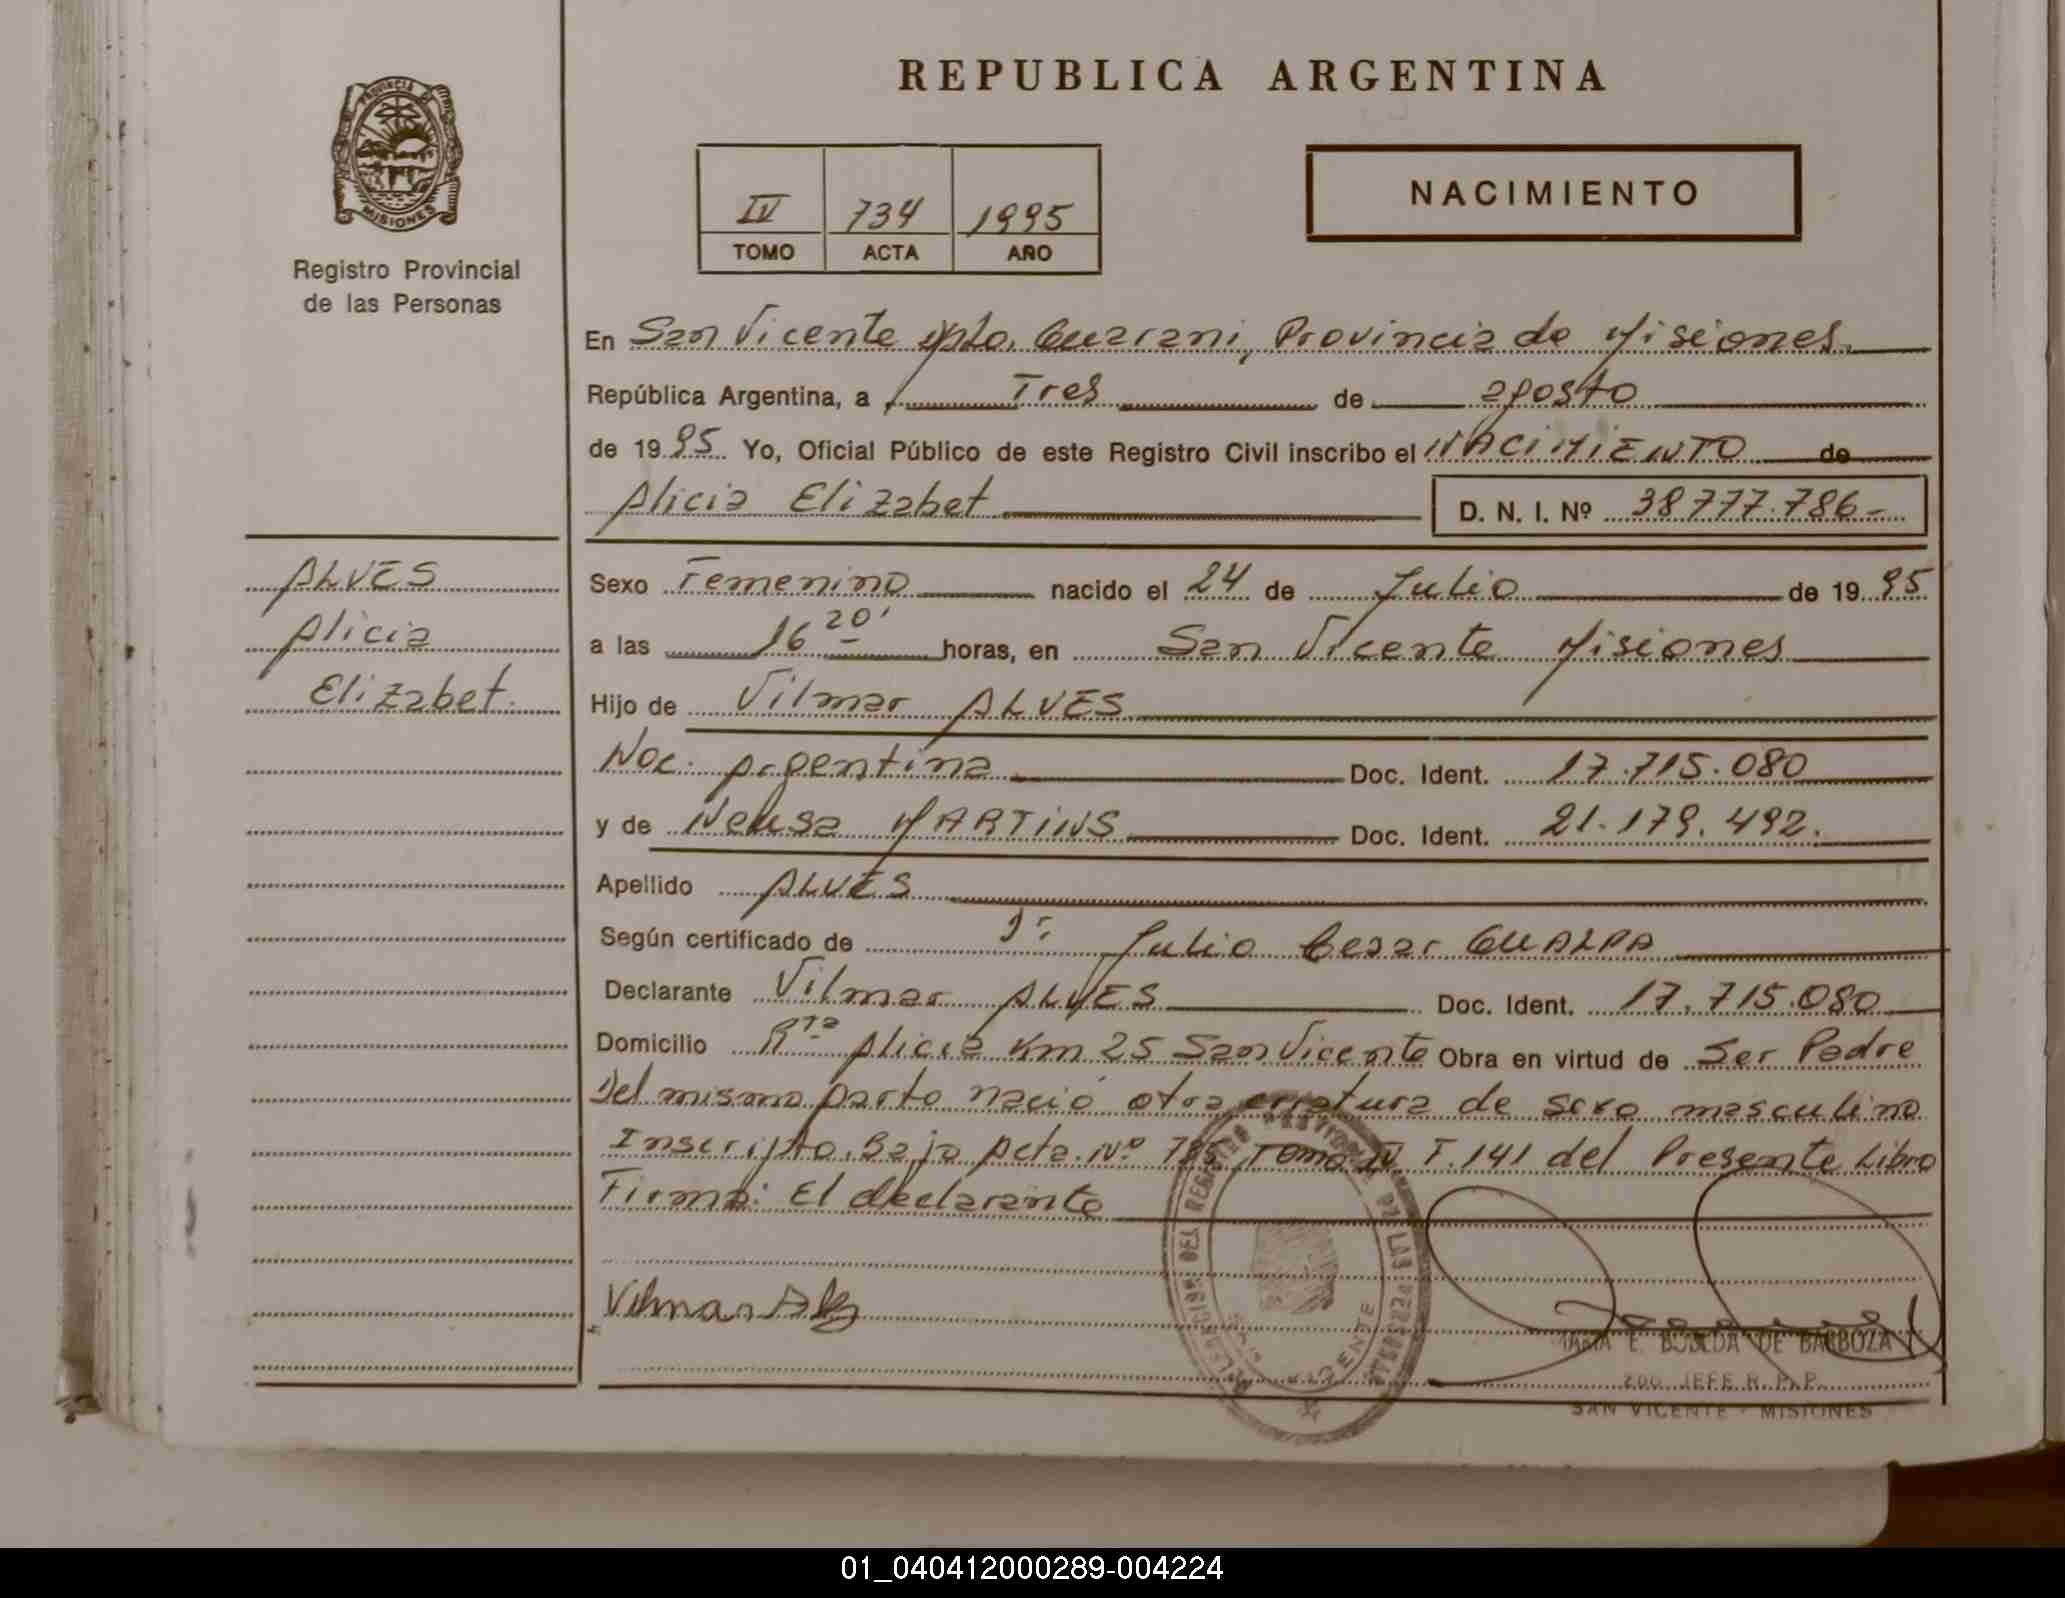 REPUBLICA ARGENTINA
PROVINCIA DE
MISIONES
Registro Provincial
de las Personas
NACIMIENTO
IV 734 1995
TOMO ACTA AÑO
En San Vicente Dpto. Guarani, Provincia de Misiones.
República Argentina, a Tres de agosto
de 1995 Yo, Oficial Público de este Registro Civil inscribo el NACIMIENTO de
Alicia Elizabet D. N. I. Nº 38777.786-
ALVES
Alicia
Elizabet.
Sexo Femenino nacido el 24 de Julio de 1995
a las 16 20' horas, en San Vicente Misiones
Hijo de Vilmar ALVES
Nac. Argentina Doc. Ident. 17.715.080
y de Neusa MARTINS Doc. Ident. 21.179.492.
Apellido ALVES
Según certificado de Dr. Julio Cesar GUALPA
Declarante Vilmar ALVES Doc. Ident. 17.715.080
Domicilio Rta Alicia Km 25 San Vicente Obra en virtud de Ser Padre
Del mismo parto nació otra criatura de sexo masculino
Inscripto Bajo Acta Nº 735 Tomo IV F.141 del Presente Libro
Firma: El declarante
Vilmar Alves
DELEGACION DEL REGISTRO PROVINCIAL DE LAS PERSONAS
VICENTE
E. BUJEDA DE BARBOZA
JEFE R. P. P.
SAN VICENTE - MISIONES
01_040412000289-004224